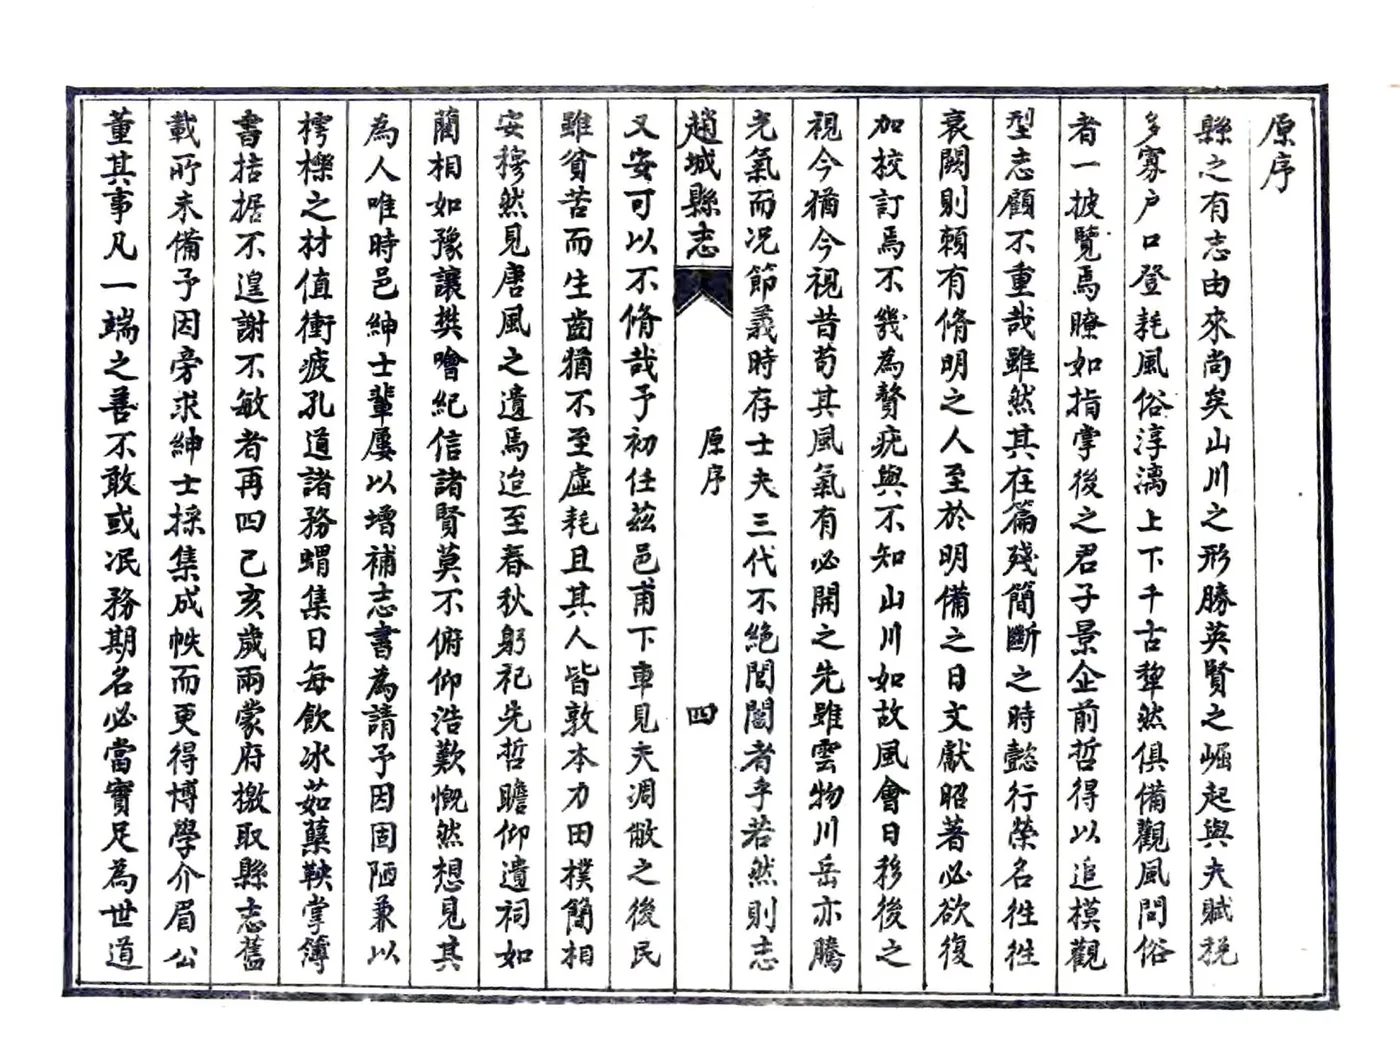 原序
縣之有志由來尚矣山川之形勝英賢之崛起與夫賦稅
多寡戶口登耗風俗淳漓上下千古犂然俱備觀風問俗
者一披覽焉瞭如指掌後之君子景企前哲得以追模觀
型志顧不重哉雖然其在篇殘簡斷之時懿行榮名徃徃
衰闕則賴有脩明之人至於明備之日文獻昭著必欲復
加校訂焉不幾為贅疣與不知山川如故風會日移後之
視今猶今視昔苟其風氣有必開之先雖雲物川岳亦騰
光氣而况節義時存士夫三代不絕閭閻者乎若然則志
趙城縣志
原序
四
又安可以不脩哉予初任茲邑甫下車見夫凋敝之後民
雖貧苦而生齒猶不至虛耗且其人皆敦本力田樸簡相
安穆然見唐風之遺焉迨至春秋躬祀先哲瞻仰遺祠如
藺相如豫讓樊噲紀信諸賢莫不俯仰浩歎慨然想見其
為人唯時邑紳士輩屢以增補志書為請予因固陋兼以
樗櫟之材值衝疲孔道諸務蝟集日每飲冰茹蘗鞅掌簿
書拮据不遑謝不敏者再四己亥歲兩蒙府檄取縣志舊
載所未備予因旁求紳士採集成帙而更得博學介眉公
董其事凡一端之善不敢或泯務期名必當實足為世道